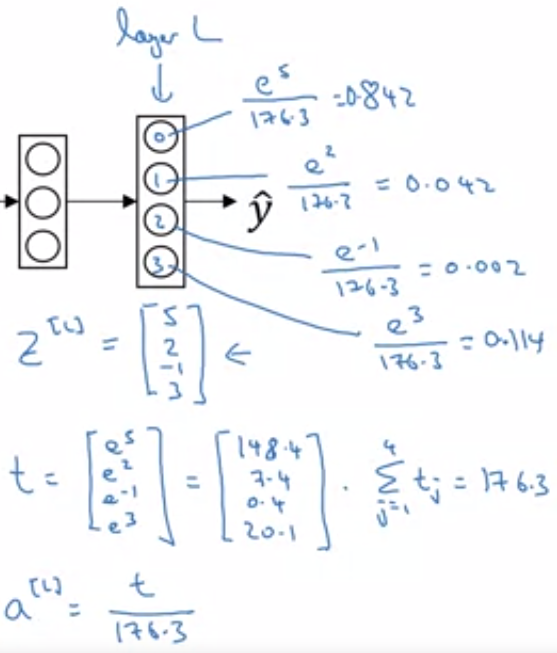 layer L
e^5 / 176.3 = 0.842
0
e^2 / 176.3 = 0.042
1
ŷ
2
e^-1 / 176.3 = 0.002
3
e^3 / 176.3 = 0.114
z^[L] = [5 2 -1 3] ←
t = [e^5 e^2 e^-1 e^3] = [148.4 7.4 0.4 20.1] . ∑_{j=1}^{4} t_j = 176.3
a^[L] = t / 176.3